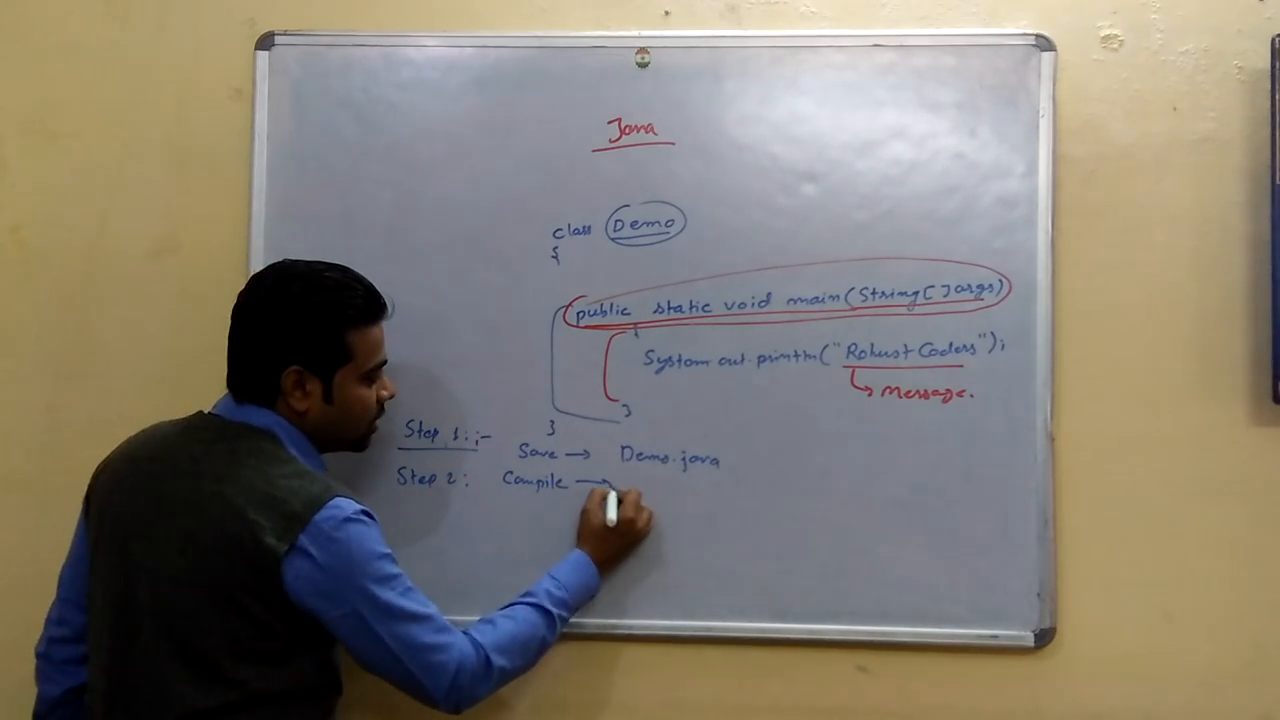 Java
class Demo
{
public static void main(String[] args)
{
System.out.println("Robust Coders");
→ Message.
}
}
Step 1:-
Save → Demo.java
Step 2: Compile →